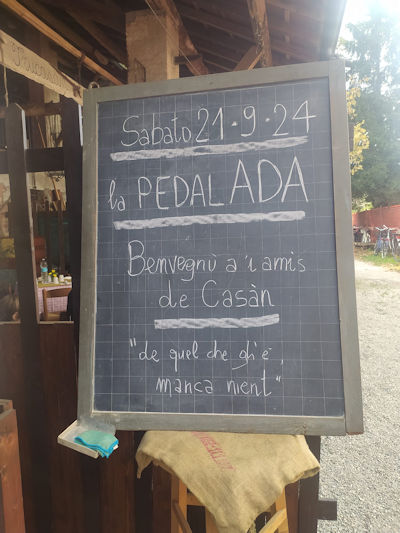 Sabato 21·9·24
la PEDALADA
Benvegnù a 'i amis
de Casàn
"de quel che gh'è,
manca nient"